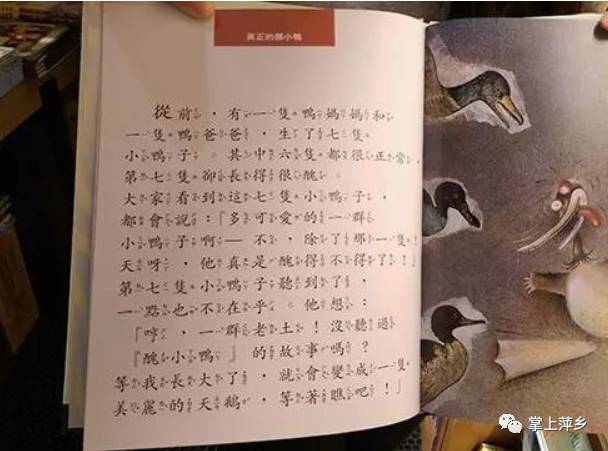 真正的醜小鴨
從前，有一隻鴨媽媽和
一隻鴨爸爸，生了七隻
小鴨子。其中六隻都很正常，
第七隻卻長得很醜。
大家看到這七隻小鴨子，
都會說：「多可愛的一群
小鴨子啊—不，除了那一隻！
天呀，他真是醜得不得了！」
第七隻小鴨子聽到了，
一點也不在乎。他想：
「哼，一群老土！沒聽過
『醜小鴨』的故事嗎？
等我長大了，就會變成一隻
美麗的天鵝，等著瞧吧！」
掌上萍乡